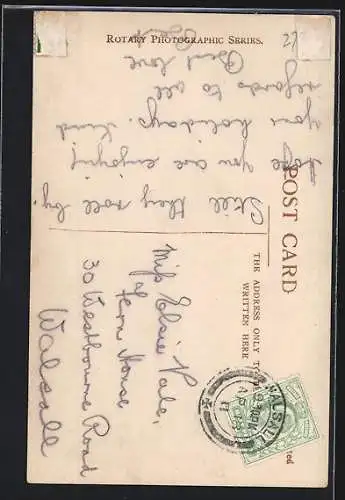 ROTARY PHOTOGRAPHIC SERIES.
POST CARD
THE ADDRESS ONLY TO BE
WRITTEN HERE
Still they roll by.
you are enjoying
your holidays. Kind
regards to all
Best love
Miss Elsie Vale,
Fern House
30 Westbourne Road
Walsall
WALSALL